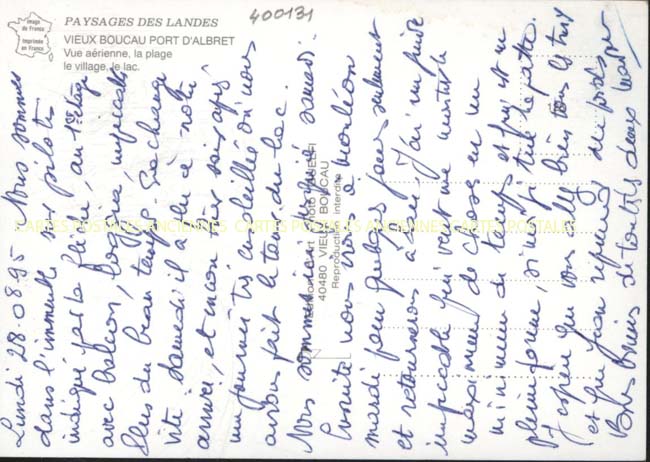 Image
de France
Imprimée
en France
PAYSAGES DES LANDES
VIEUX BOUCAU PORT D'ALBRET
Vue aérienne, la plage
le village, le lac.
400131
Lundi 28.08.95 Nous sommes
dans l'immeuble sur pilotis
indiqué par la flèche, au 1er étage
avec balcon, loggia, impeccable
Plus du beau temps. Ça change
vite Samedi il a plu à notre
arrivée, et encore hier soir après
une journée très ensoleillée où nous
avons fait le tour du lac.
Nous sommes ici depuis samedi.
Ensuite nous irons à Mauléon
mardi pour quelques jours seulement
et retournerons à J'ai un guide
impeccable qui veut me montrer le
maximum de choses en un
minimum de temps et qui est en
pleine forme, sinon
J'espère que vous allez bien tous les trois
et que Jean reprend du
Bons Baisers de tous les deux
40480 VIEUX BOUCAU
Reproduction interdite
CARTES POSTALES ANCIENNES CARTES POSTALES ANCIENNES CARTES POSTALES